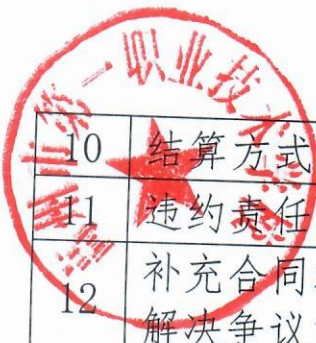 市第一职业技术
10 结算方式
11 违约责任
12 补充合同
解决争议